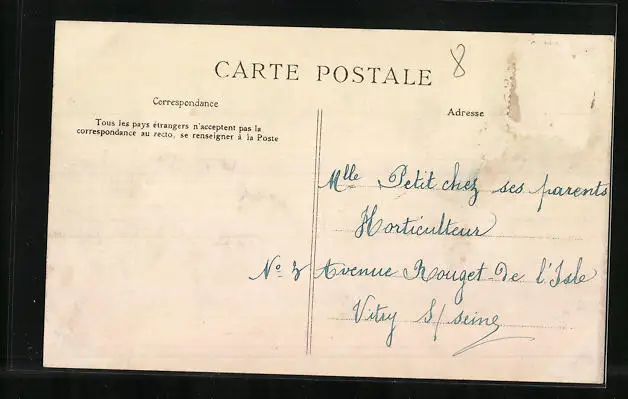 8
CARTE POSTALE
Correspondance
Tous les pays étrangers n'acceptent pas la
correspondance au recto, se renseigner à la Poste
Adresse
Mlle Petit chez ses parents
Horticulteur
No 3 Avenue Rouget-De l'Isle
Vitry S/ seine